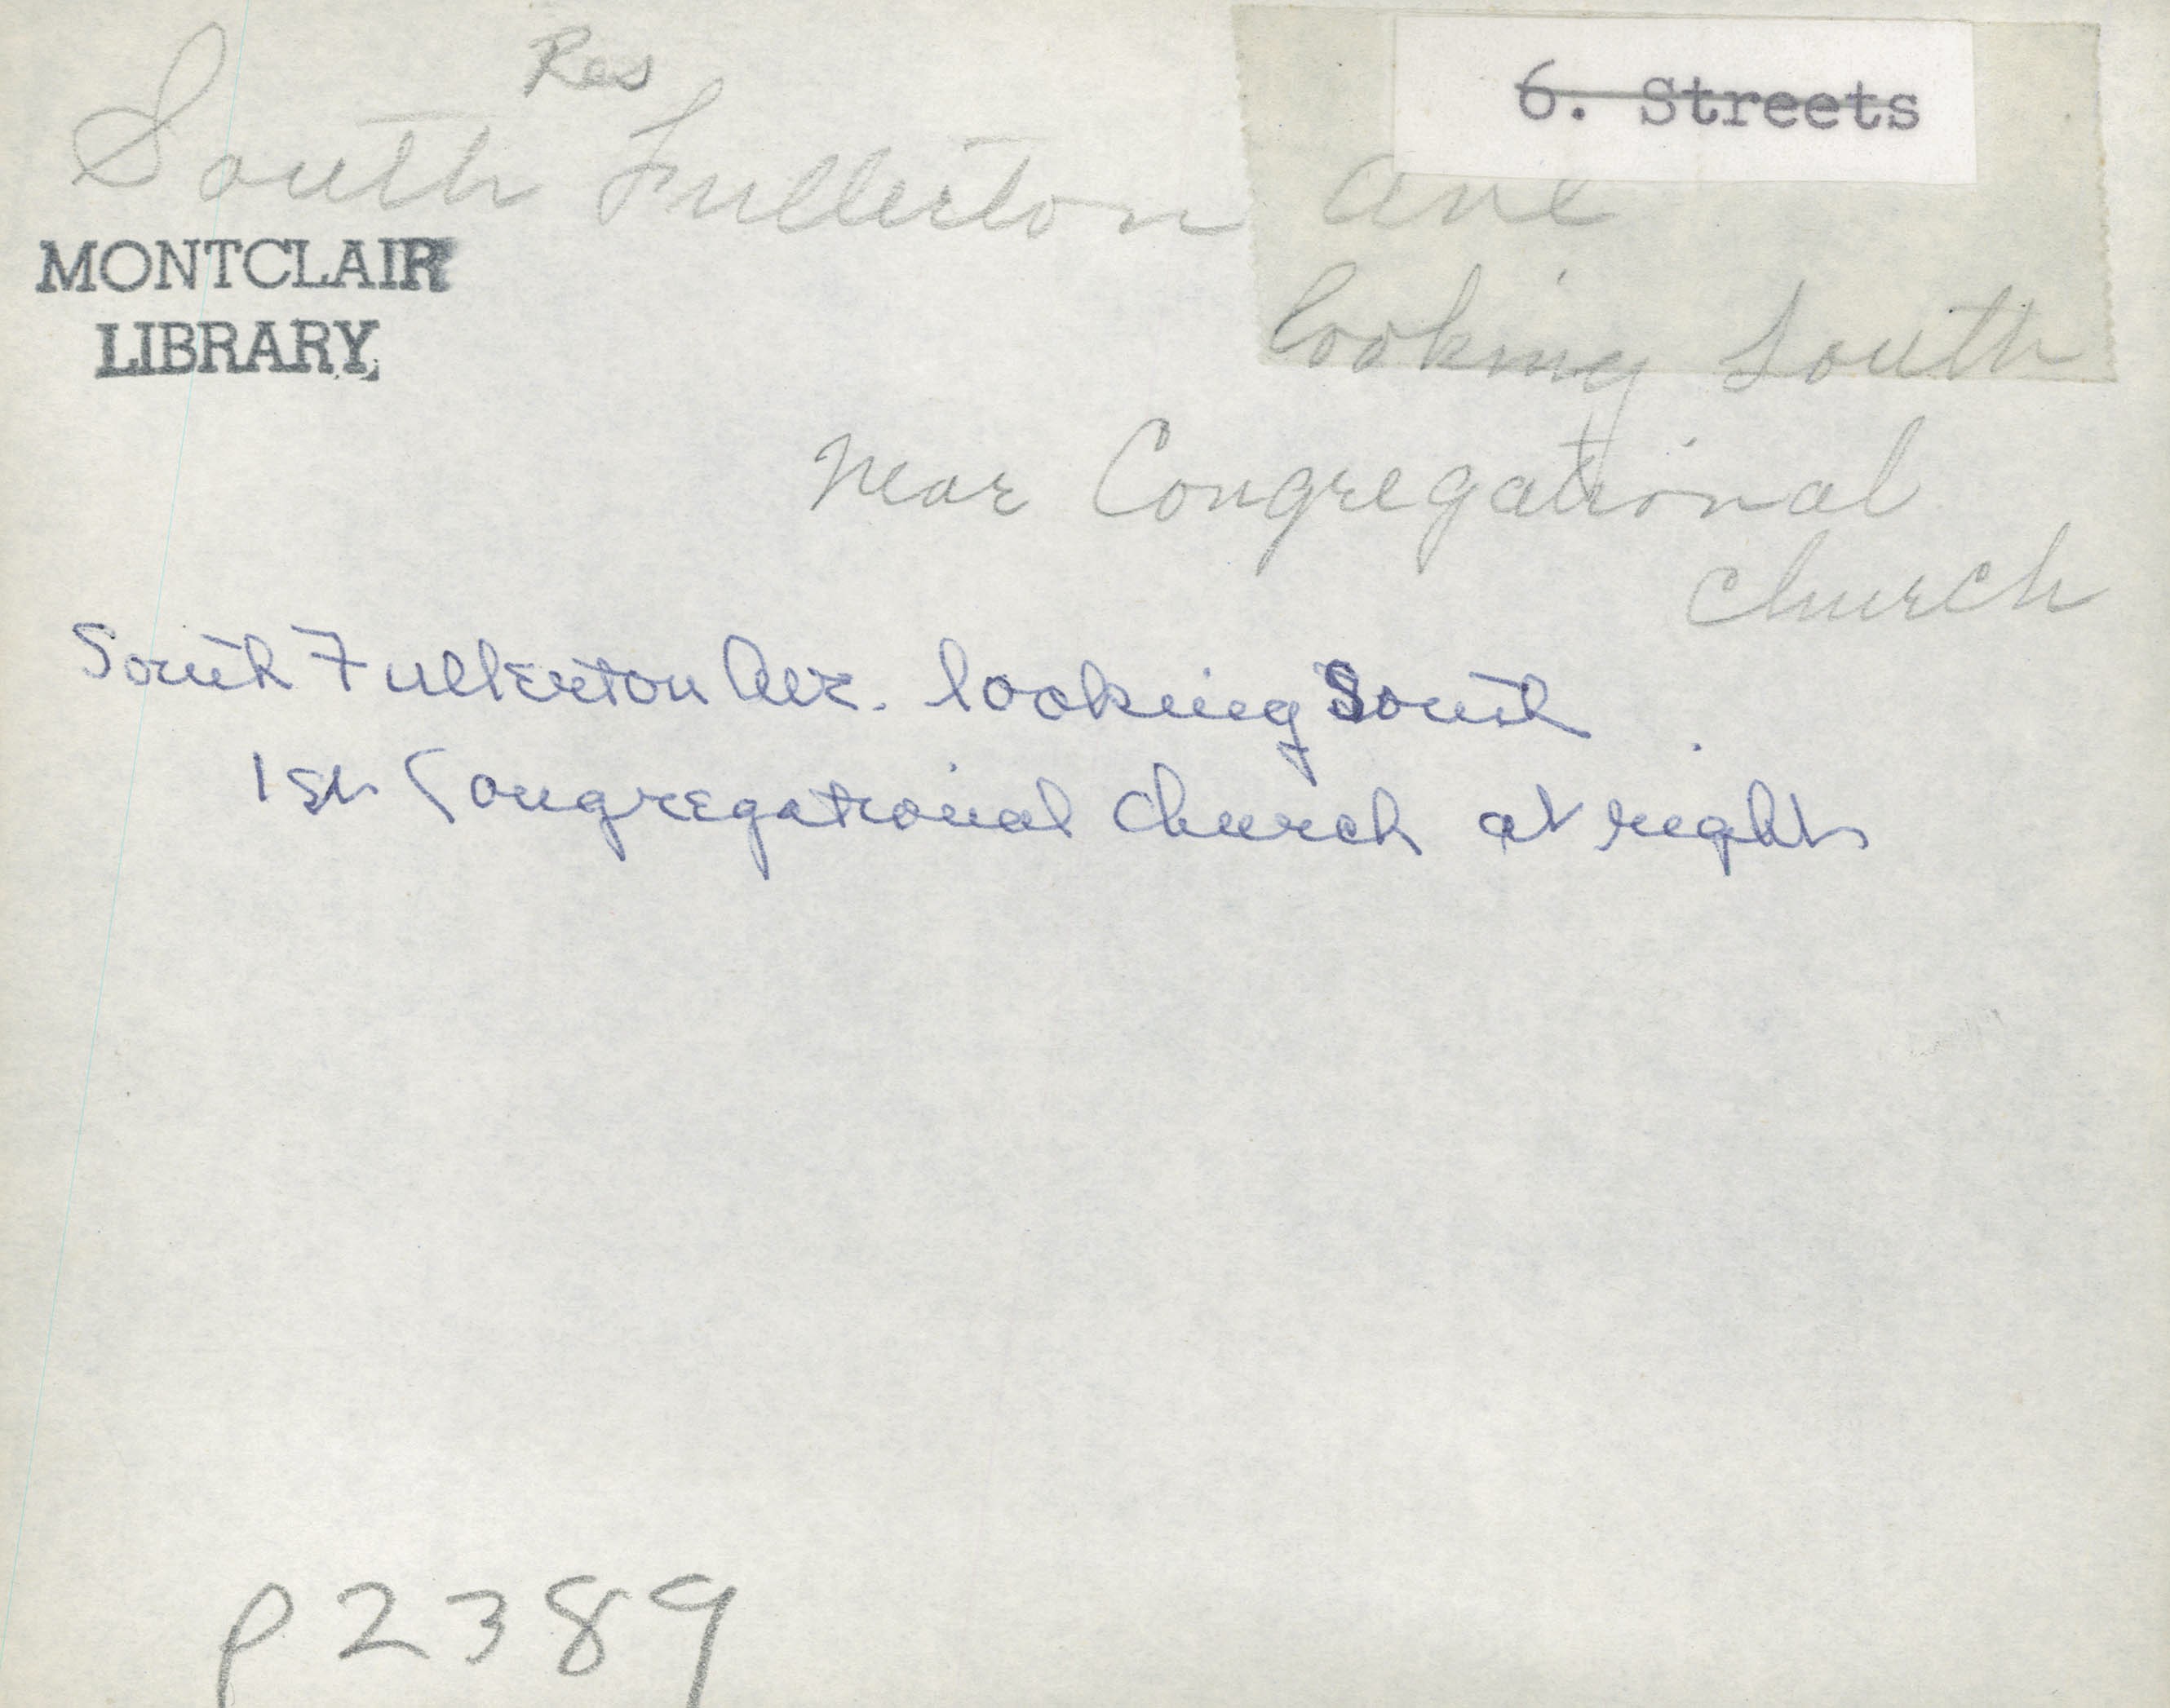 Res
6. Streets
South Fullerton Ave
MONTCLAIR
LIBRARY
looking South
near Congregational
Church
South Fullerton Ave. looking South
1st Congregational Church at right
P2389